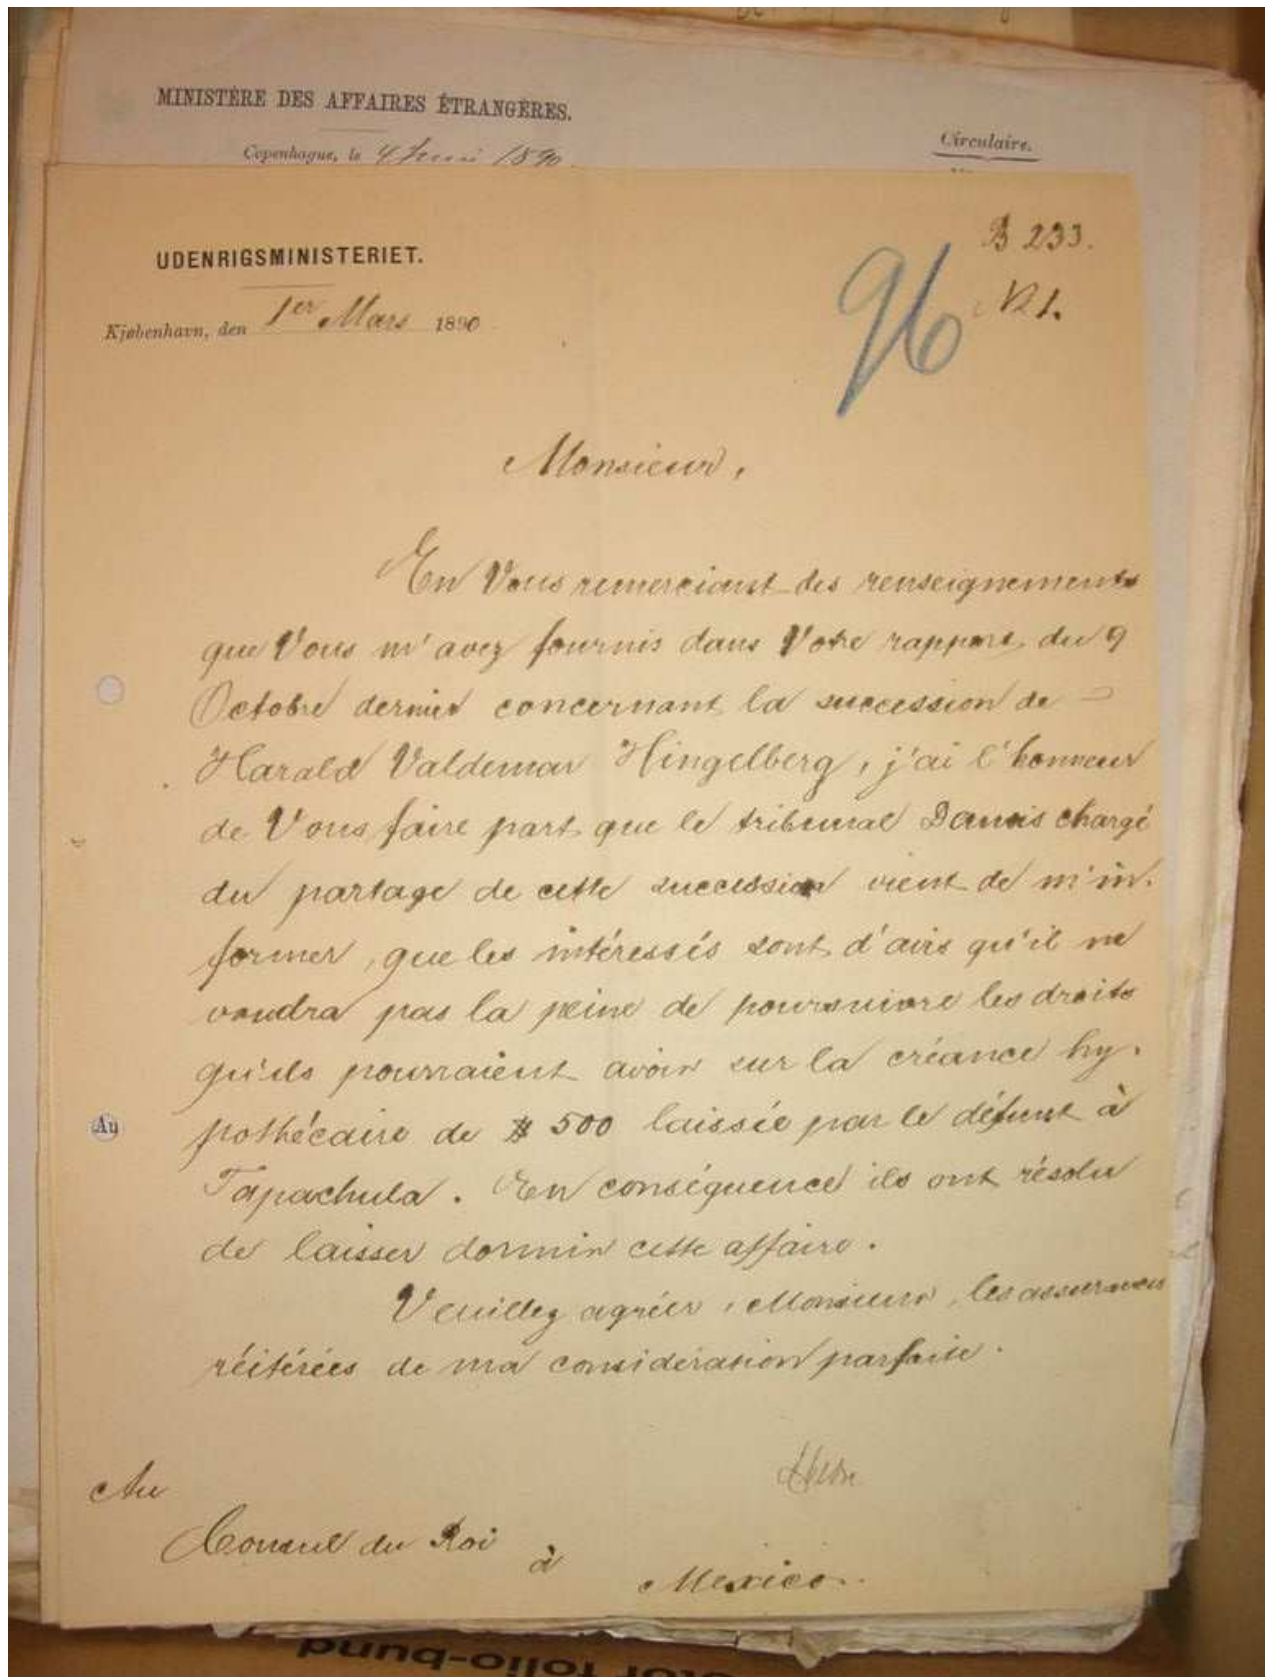 MINISTÈRE DES AFFAIRES ÉTRANGÈRES.
Copenhague, le 4 1890
Circulaire.
B 233.
N 1.
96
UDENRIGSMINISTERIET.
Kjøbenhavn, den 1er Mars 1890
Monsieur,
En Vous remerciant des renseignements
que Vous m'avez fournis dans Votre rapport du 9
Octobre dernier concernant la succession de
Harald Valdemar Hingelberg, j'ai l'honneur
de Vous faire part que le tribunal Danois chargé
du partage de cette succession vient de m'in-
former, que les intéressés sont d'avis qu'il ne
vaudra pas la peine de poursuivre les droits
qu'ils pourraient avoir sur la créance hy-
pothécaire de $ 500 laissée par le défunt à
Tapachula. En conséquence ils ont résolu
de laisser dormir cette affaire.
Veuillez agréer, Monsieur, les assurances
réitérées de ma considération parfaite.
Au
Consul du Roi
à
Mexico.
Au
folio-bund